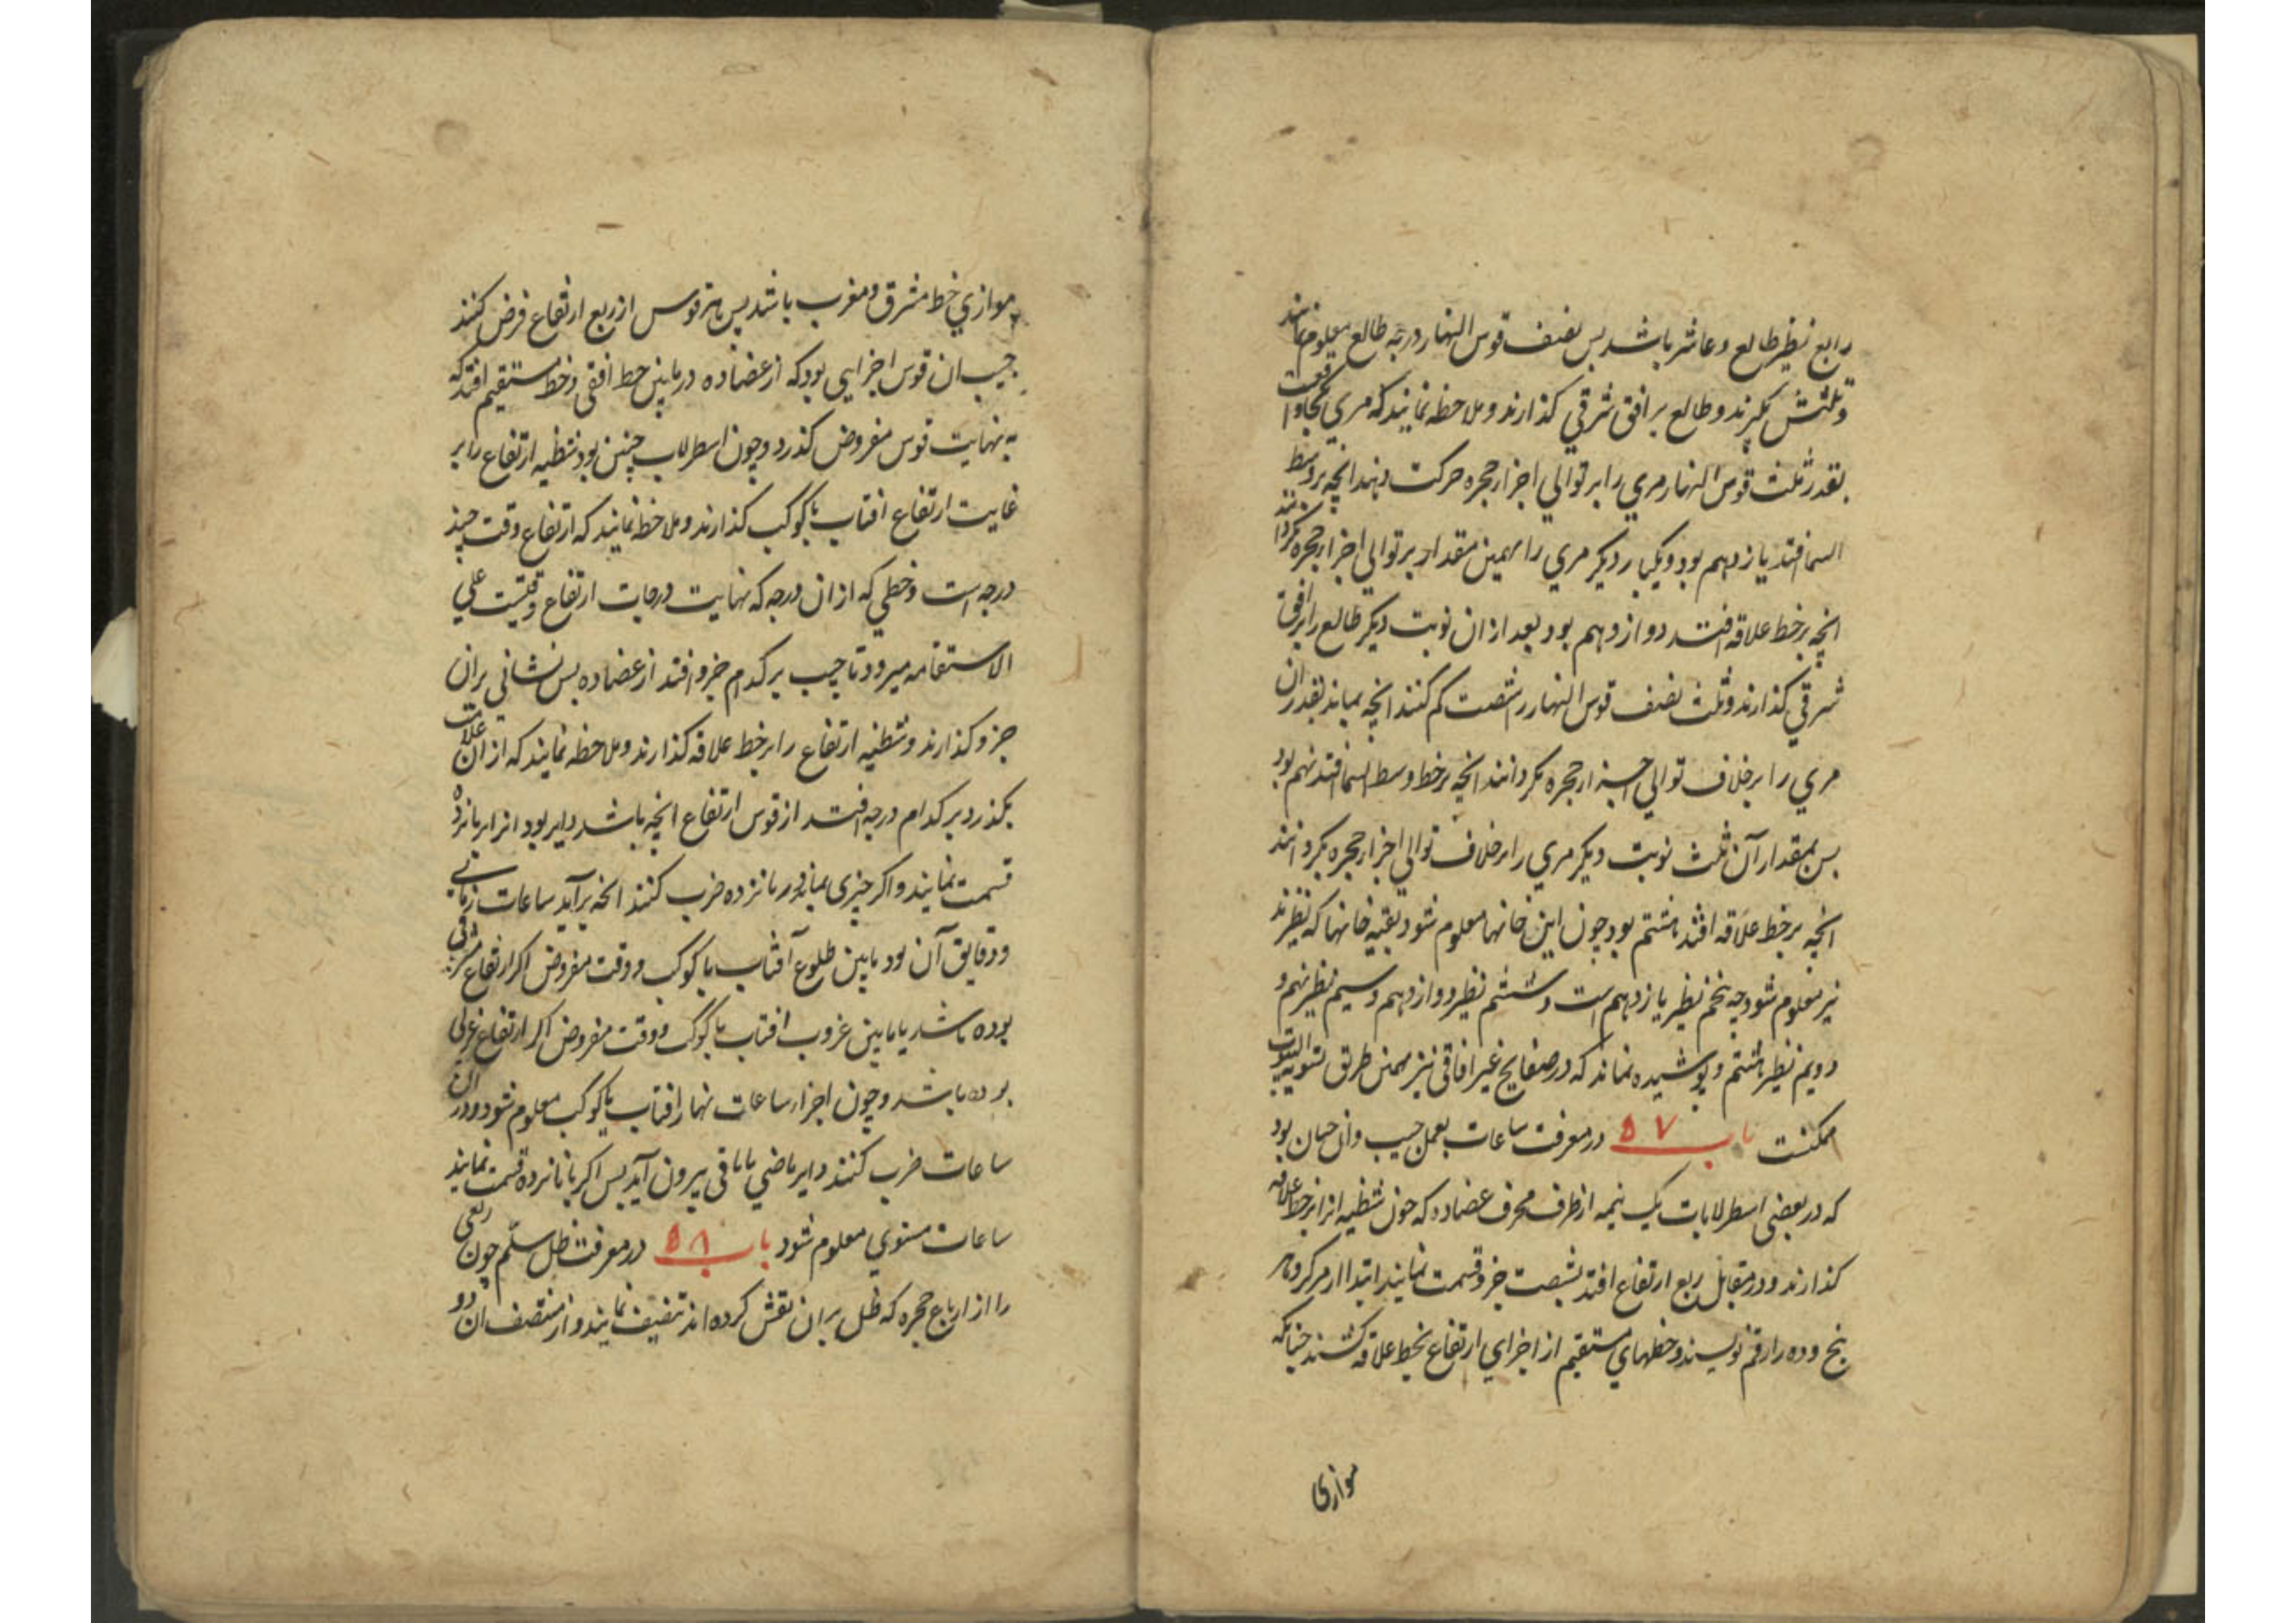 رابع نظیر طالع و عاشر باشد پس نصف قوس النهار درجه طالع معلوم نمایند
و ثلثش بکیرند و طالع بر افق شرقی کذارند و ملاحظه نمایند که مری کجا واقعست
بقدر ثلث قوس النهار مری را بر توالی اجزار حجره حرکت دهند انچه بر وسط
السما افتد یازدهم بود و یکبار دیکر مری را بهمین مقدار بر توالی اجزار حجره بکردانند
انچه بر خط علاقه افتد دوازدهم بود بعد از ان نوبت دیکر طالع را بر افق
شرقی کذارند و ثلث نصف قوس النهار از شصت کم کنند انچه بماند بقدر ان
مری را بر خلاف توالی اجزار حجره بکردانند انچه بر خط وسط السما افتد نهم بود
بس بمقدار آن ثلث نوبت دیکر مری را بر خلاف توالی اجزار حجره بکردانند
انچه بر خط علاقه افتد هشتم بود چون این خانها معلوم شود بقیه خانها که نظیرند
نیز معلوم شود چه پنجم نظیر یازدهم است و ششم نظیر دوازدهم و سیم نظیر نهم و
دویم نظیر هشتم و پوشیده نماند که در صفایح غیر افاقی نیز بهمین طریق تسویه البیوت
ممکنست باب ۵۷ در معرفت ساعات بعمل جیب و ان چنان بود
که در بعضی اسطرلابات یک نیمه از طرف محرف عضاده که چون شظیه انرا بر خط علاقه
کذارند و در مقابل ربع ارتفاع افتد بشصت جزو قسمت نمایند ابتدا از مرکز و هر
پنج و ده را رقم نویسند و خطهای مستقیم از اجزای ارتفاع بخط علاقه کشند چنانکه
موازی
موازی خط مشرق و مغرب باشد پس هر قوس از ربع ارتفاع فرض کنند
جیب ان قوس اجزایی بود که از عضاده در مابین خط افقی و خط مستقیم افتد که
به نهایت قوس مفروض کذرد و چون اسطرلاب چنین بود شظیه ارتفاع را بر
غایت ارتفاع افتاب یا کوکب کذارند و ملاحظه نمایند که ارتفاع وقت چند
درجه است و خطی که از ان درجه که نهایت درجات ارتفاع وقتست علی
الاستقامه میرود تا جیب بر کدام جزو افتد از عضاده بس نشانی بران
جزو کذارند و شظیه ارتفاع را بر خط علاقه کذارند و ملاحظه نمایند که از ان علامت
بکذرد بر کدام درجه افتد از قوس ارتفاع انچه باشد دایر بود انرا بر پانزده
قسمت نمایند و اکر چیزی بماند در پانزده ضرب کنند انچه برآید ساعات زمانی
و دقایق آن بود مابین طلوع آفتاب یا کوکب و وقت مفروض اکر ارتفاع شرقی
بوده باشد یا مابین غروب افتاب یا کوکب و وقت مفروض اکر ارتفاع غربی
بوده باشد و چون اجزار ساعات نهار افتاب یا کوکب معلوم شود و در ان
ساعات ضرب کنند دایر ماضی یا باقی بیرون آید پس اکر بر پانزده قسمت نمایند
ساعات مستوی معلوم شود باب ۵۸ در معرفت ظل سلم چون ربعی
را از ارباع حجره که ظل بران نقش کرده اند تنصیف نمایند و از منتصف ان دو